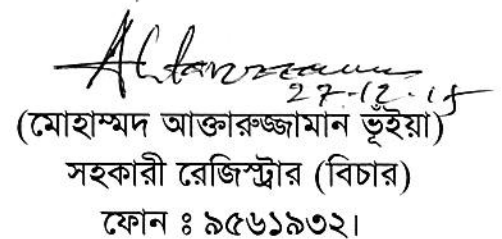 27-12-18
(মোহাম্মদ আক্তারুজ্জামান ভূঁইয়া)
সহকারী রেজিস্ট্রার (বিচার)
ফোন ঃ ৯৫৬১৯৩২।